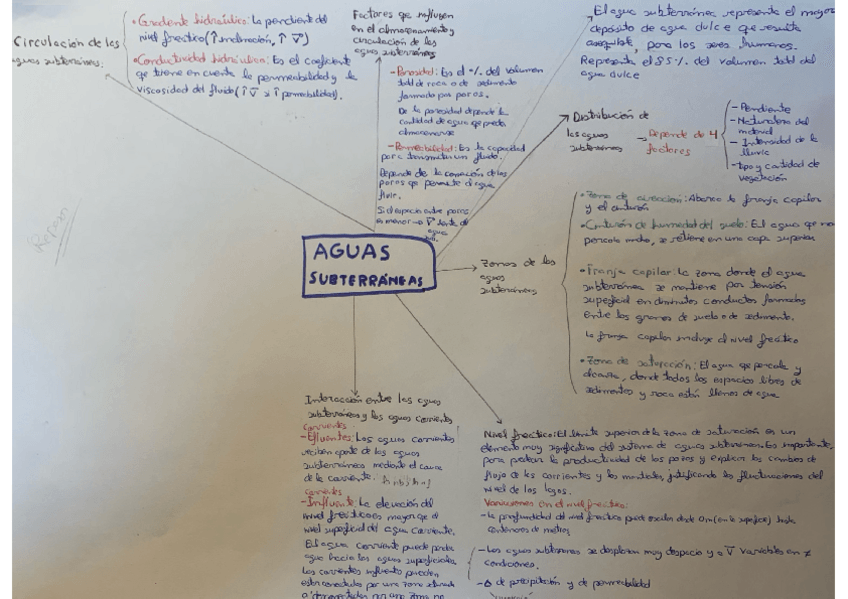 Circulación de las
aguas subterráneas.
• Gradiente hidráulico: La pendiente del
nivel freático (↑ inclinación, ↑ V̄)
• Conductividad hidráulica: Es el coeficiente
que tiene en cuenta la permeabilidad y la
viscosidad del fluido (↑V̄ si ↑ permeabilidad).
Factores que influyen
en el almacenamiento y
circulación de las
aguas subterráneas
- Porosidad: Es el % del volumen
total de roca o de sedimento
formado por poros.
De la porosidad depende la
cantidad de agua que puede
almacenarse
- Permeabilidad: Es la capacidad
para transmitir un fluido.
Depende de la conexión de los
poros que permite al agua
fluir.
Si el espacio entre poros
es menor → V̄ lenta de
agua
El agua subterránea representa el mayor
depósito de agua dulce que resulta
asequible, para los seres humanos.
Representa el 85% del volumen total del
agua dulce
Distribución de
las aguas
subterráneas
→ Depende de 4
factores
- Pendiente
- Naturaleza del
material
- Intensidad de la
lluvia
- tipo y cantidad de
vegetación
Repaso
AGUAS
SUBTERRÁNEAS
Zonas de las
aguas
subterráneas
• Zona de aireación: Abarca la franja capilar
y el cinturón
• Cinturón de humedad del suelo: El agua que no
percola mucho, se retiene en una capa superior
• Franja capilar: La zona donde el agua
subterránea se mantiene por tensión
superficial en diminutos conductos formados
entre los granos de suelo o de sedimento.
La franja capilar incluye al nivel freático
• Zona de saturación: El agua que percola y
alcanza, donde todos los espacios libres de
sedimentos y roca están llenos de agua
Interacción entre las aguas
subterráneas y las aguas corrientes
corrientes
- Efluentes: Las aguas corrientes
reciben aporte de las aguas
subterráneas mediante el cauce
de la corriente.
corrientes
- Influente: La elevación del
nivel freático es mayor que el
nivel superficial del agua corriente.
El agua corriente puede perder
agua hacia las aguas superficiales
Las corrientes influentes pueden
estar conectadas por una zona saturada
o desconectadas por una zona no
Nivel freático: El límite superior de la zona de saturación es un
elemento muy significativo del sistema de aguas subterráneas. Es importante
para predecir la productividad de los pozos y explicar los cambios de
flujo de las corrientes y los manantiales, justificando las fluctuaciones del
nivel de los lagos.
Variaciones en el nivel freático:
- La profundidad del nivel freático puede oscilar desde 0m (en la superficie) hasta
centenares de metros
- Las aguas subterráneas se desplazan muy despacio y a V̄ variables en ≠
condiciones.
- Δ de precipitación y de permeabilidad